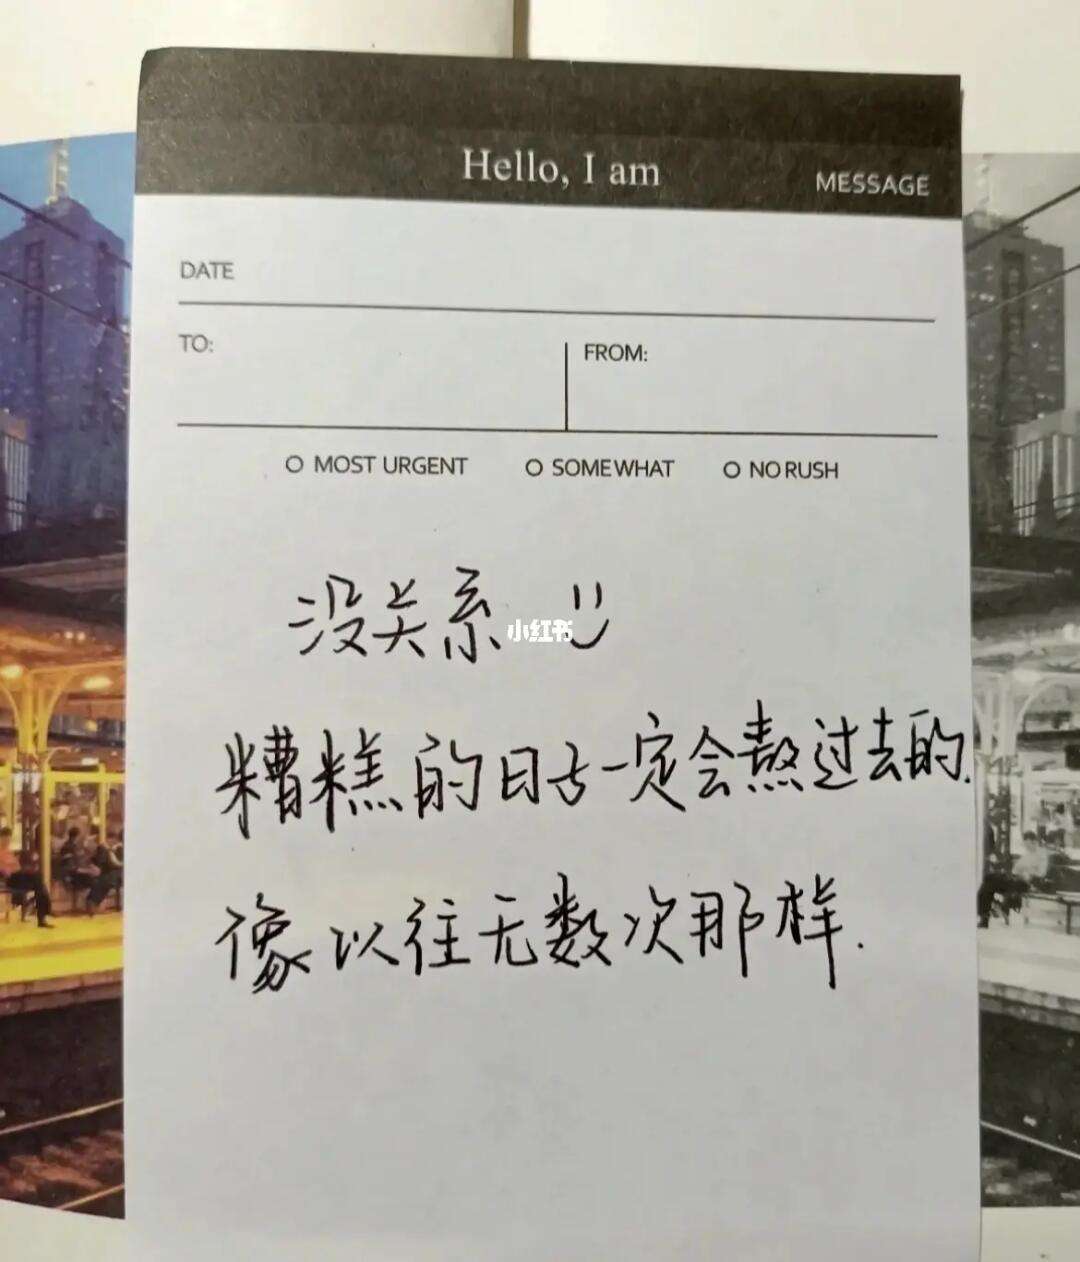 Hello, I am
MESSAGE
DATE
TO:
FROM:
MOST URGENT
SOMEWHAT
NO RUSH
没关系
小红书
糟糕的日子一定会熬过去的.
像以往无数次那样.